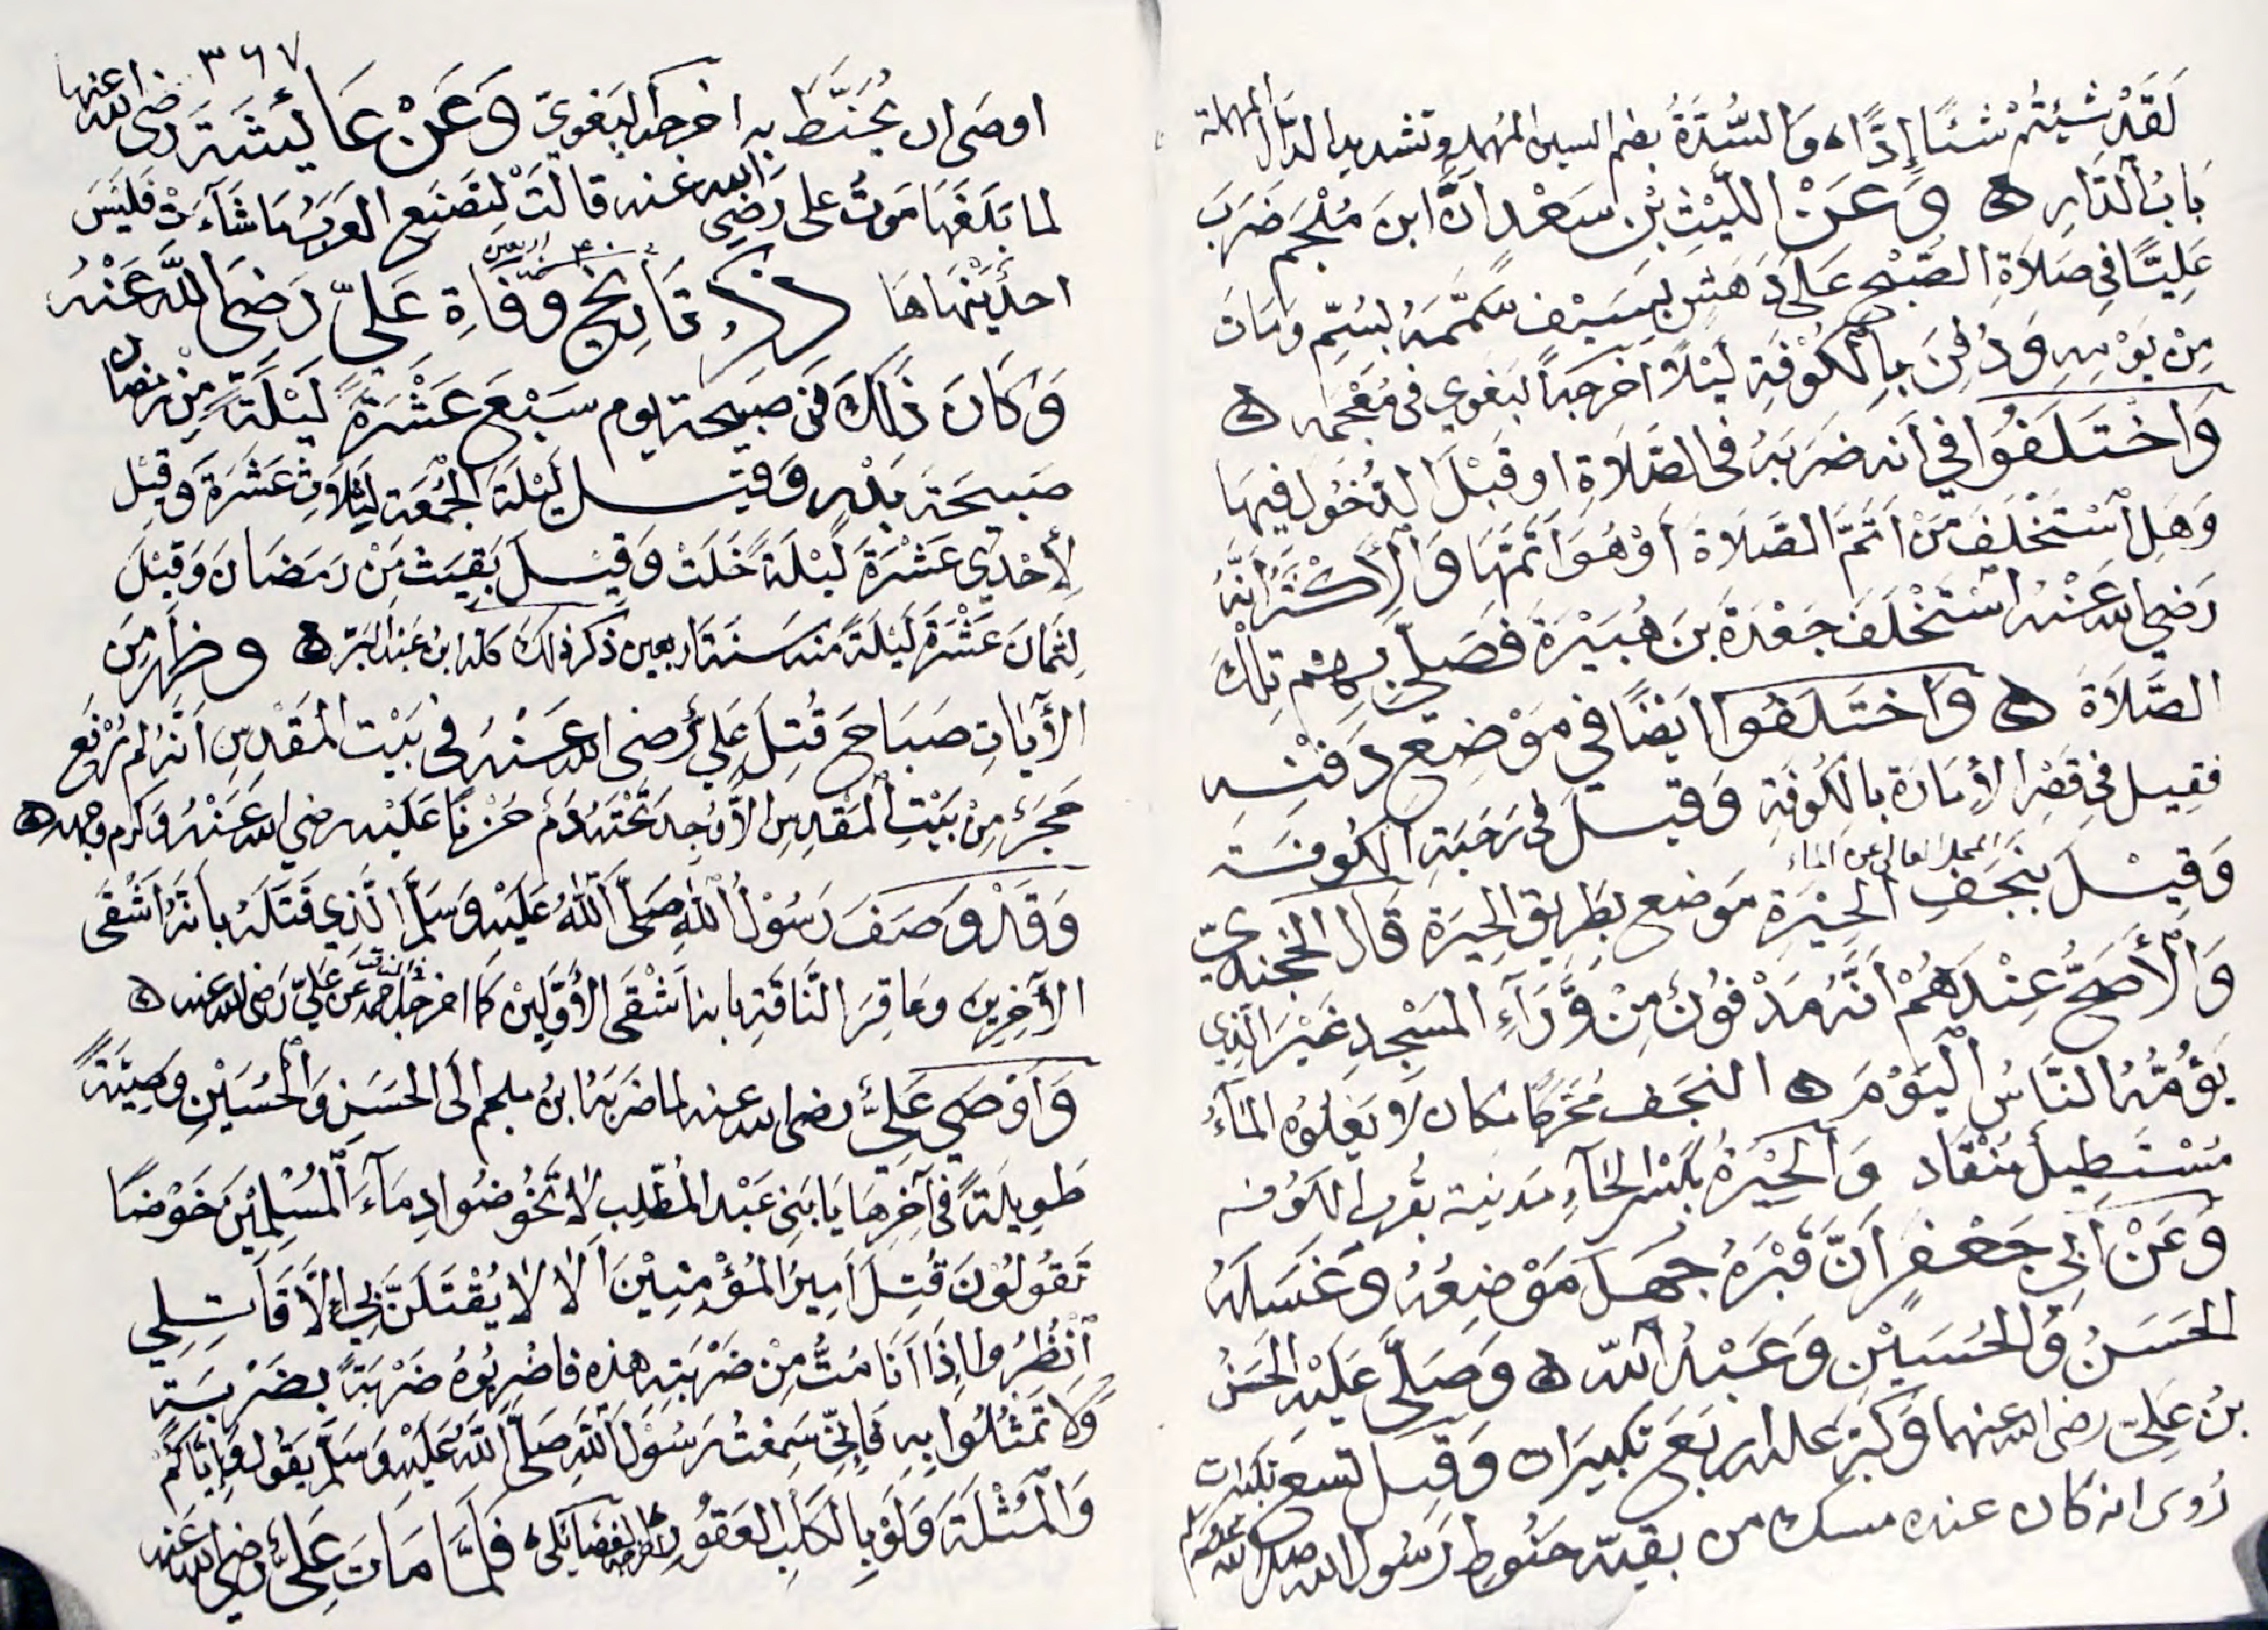 لَقَدْ شِيْتُمْ شَيْئًا إِدًّا، وَالسُّدَّةُ بضم السين المهملة وتشديد الدال المهملة
بَابُ الدَّارِ ه وَعَنْ اللَّيْثِ بْنِ سَعْدٍ انَّ ابنَ مُلْجَم ضَرَبَ
عَلِيًّا فِي صَلَاةِ الصُّبْحِ عَلَى دَهَشٍ بِسَيْفٍ سَمَّمَهُ بِسُمٍّ وَمَاتَ
مِنْ يَوْمِهِ وَدُفِنَ بِالْكُوفَةِ لَيْلًا اخرجه البغوي في مُعْجَمِه ه
وَاخْتَلَفُوا فِي أنه ضَرَبَهُ في الصَّلَاةِ او قَبْلَ الدُّخُولِ فِيهَا
وَهَلِ اسْتَخْلَفَ مَنْ اَتَمَّ الصَّلَاةَ أَوْ هُوَ اَتَمَّهَا وَالْأَكْثَرُ أَنَّهُ
رَضِيَ الله عَنْهُ اسْتَخْلَفَ جَعْدَةَ بنَ هُبَيْرَةَ فَصَلَّى بِهِمْ تِلْكَ
الصَّلَاةَ ه وَاخْتَلَفُوا ايَضًا فِي مَوْضِعِ دَفْنِهِ
فقيل في قَصْرِ الأُمَارَة بالكُوفَةِ وَقيلَ في رَحَبَةِ الكُوفَة
المحل العالي عن الماء
وَقِيْلَ بِنَجَفِ الْحِيْرَةِ مَوضع بِطَرِيقِ الحِيَرَة قَالَ الخجندِيّ
وَالْأَصَحُّ عِنْدَهُمْ اَنَّهُ مَدْفُونٌ مِنْ وَّرَآءِ المَسْجِدِ غَيْرَ الَّذِي
يَؤُمُّهُ النَّاسُ الْيَوْمَ ه النجَف مُحَرَّكًا مكان لَا يَعْلُوهُ المَآءُ
مُسْتَطِيلٌ مُنْقَاد وَالْحِيْرَةُ بكَسْرِ الحَآءِ مَدينة بقُربِ الكوُفه
وَعَنْ أَبِي جَعْفَرٍ اَنَّ قَبْرَهُ جُهِلَ مَوْضِعُهُ وَغَسَلَهُ
الحَسَنُ وَالْحُسَيْنِ وَعَبْدُ اللّه ه وَصَلَّى عَلَيْهِ الحَسَنُ
بنُ عَلِيّ رضى الله عنهما وَكَبَّرَ عليه اربَعَ تكبيرَات وَقيلَ تسع تكبيرات
رُوىَ انه كان عنده مسك من بقيّة حَنُوطِ رَسُولِ الله صلى الله عليه وسلم
٣٦٧
اوصَى ان يُحَنَّطَ به اخرجه البَغوِيّ وَعَنْ عَائِشَةَ رضى الله عنها
لما بَلَغَهَا مَوتُ على رَضِي الله عنه قالتْ لتَصْنَع العَرَبُ مَا شَآءَتْ فَلَيْسَ
احدٌ يَنْهَاهَا ذكر تَارِيخِ وَفَاةِ عَلِيّ رَضِيَ اللَّهُ عَنْهُ
سنة ٤٠ اربعين
وَكَانَ ذَلِكَ في صبيحة يوم سَبْعَ عَشْرَةَ لَيْلَةً مِن رمضان
صَبيحَةَ بَدْرٍ وَقيل لَيْلَةَ الجُمُعَةِ لِثَلاثِ عَشَرَةَ وَقِيْل
لِأحْدَى عَشْرَةَ لَيْلَةً خَلَتْ وَقِيْلَ بَقِيَتْ مِنْ رَمَضَانَ وَقِيْلَ
لِثَمَانَ عَشْرَةَ لَيْلَةً مِنه سَنَةَ اربعين ذكر ذلكَ كلّه ابنُ عَبْدِ البَرّ ه وظَهَرَ مِنَ
الأَيَاتِ صَبَاحَ قُتِلَ عَلِيٌّ رضى الله عَنْهُ في بَيْت المَقْدِسِ اَنَّهُ لم يُرْفَع
حَجَرٌ مِنْ بَيْتِ الْمَقْدِسِ الّا وُجِدَ تَحْتَهُ دَمٌ حُزْنًا عَلَيْهِ رضي الله عَنْهُ وَكرم وجهه ه
وَقَدْ وَصَفَ رَسُوْلُ اللهِ صَلَّى اللهُ عَلَيْهِ وَسَلَّمَ الَّذِي قَتَلَهُ بِأنَّهُ اَشْقَى
الآخِرِينَ وعَاقِرَ النَّاقَةِ بانه اَشْقَى الأَوَّلِيْنَ كَمَا اخرجه احمد في المناقب عَن عَلِيّ رَضى الله عنه ه
وَاَوْصَى عَلِيٌّ رضى الله عنه لما ضَرَبَهُ ابنُ ملجم الَى الحَسَنِ وَالْحُسَيْنِ وصِيَّةً
طَوِيلَةً في آخِرِهَا يَا بَنِي عَبْد المُطَّلِب لَا تَخُوضُوا دِمَآءَ الْمُسْلِمِيْنَ خَوْضًا
تَقُولُوْنَ قُتِلَ اَمِيرُ المُؤْمِنِيْنَ اَلَا لَا يُقْتَلَنَّ بِي إلَّا قَاتِلِي
اُنْظُرُوا اِذَا اَنَا مُتُّ مِنْ ضَرْبَتِهِ هذه فاضْرِبُوهُ ضَرْبَةً بضَرْبَة
وَلَا تُمَثِّلُوا بِهِ فَاِنِّي سَمِعْتُ رَسُوْلَ اللهِ صَلَّى اللَّهُ عَلَيْهِ وَسَلَّمَ يَقُولُ وَإِيَّاكُمْ
وَالْمُثْلَةَ وَلَوْ بِالْكَلْبِ العَقُورِ اخرجه الفضائلى، فَلَمَّا مَاتَ عَلِيٌّ رضي الله عَنه